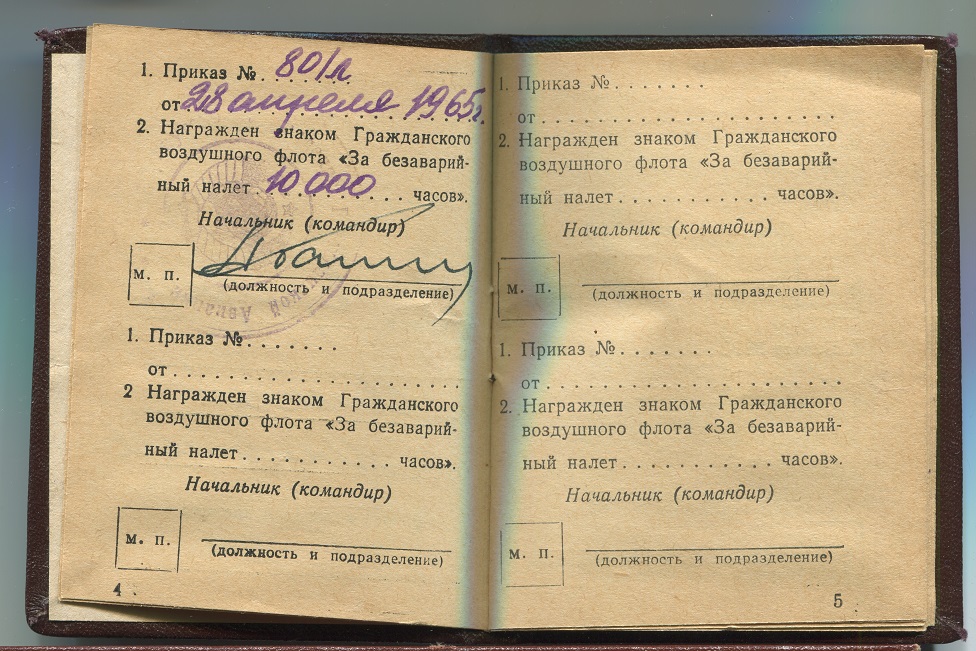 1. Приказ № 801/л
от 28 апреля 1965г.
2. Награжден знаком Гражданского
воздушного флота «За безаварий-
ный налет 10 000 часов».
Начальник (командир)
М. П.
(должность и подразделение)
1. Приказ № . . . . . . .
от . . . . . . . . . . . . . . . . . . . . . .
2 Награжден знаком Гражданского
воздушного флота «За безаварий-
ный налет . . . . . . . . . . . часов».
Начальник (командир)
М. П.
(должность и подразделение)
4
1. Приказ № . . . . . . .
от . . . . . . . . . . . . . . . . . . . . . .
2. Награжден знаком Гражданского
воздушного флота «За безаварий-
ный налет . . . . . . . . . . . часов».
Начальник (командир)
М. П.
(должность и подразделение)
1. Приказ № . . . . . . .
от . . . . . . . . . . . . . . . . . . . . . .
2. Награжден знаком Гражданского
воздушного флота «За безаварий-
ный налет . . . . . . . . . . . часов».
Начальник (командир)
М. П.
(должность и подразделение)
5